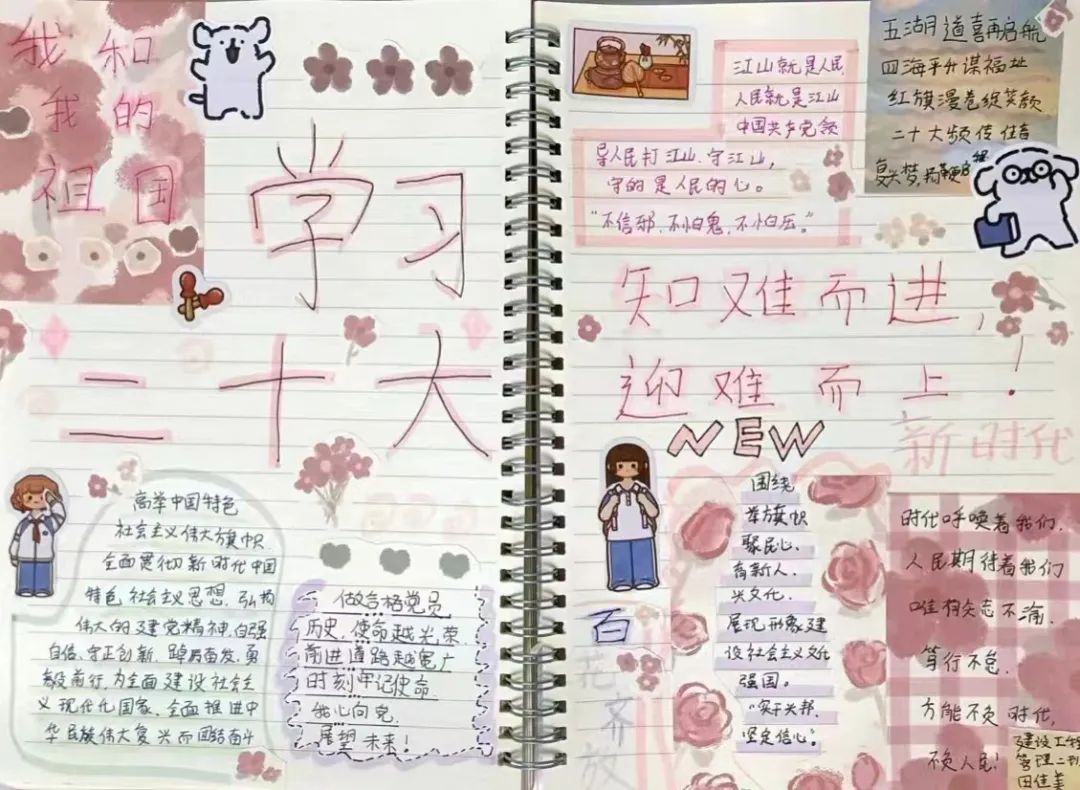 我和
我的
祖国
学习
二十大
高举中国特色
社会主义伟大旗帜
全面贯彻新时代中国
特色社会主义思想,弘扬
伟大的建党精神,自强
自信、守正创新,踔厉奋发,勇
毅前行,为全面建设社会主
义现代化国家、全面推进中
华民族伟大复兴而团结奋斗
做合格党员
历史,使命越光荣
前进道路越宽广
时刻牢记使命
我心向党
展望未来!
江山就是人民
人民就是江山
中国共产党领
导人民打江山、守江山,
守的是人民的心。
"不信邪、不怕鬼、不怕压。"
五湖道喜再启航
四海平升谋福址
红旗漫卷绽笑颜
二十大频传佳音
复兴梦,扬鞭
知难而进,
迎难而上!
NEW
新时代
围绕
举旗帜
聚民心、
育新人、
兴文化、
展现形象建
设社会主义文化
强国。
"实干兴邦,
坚定信心"。
百花齐放
时代呼唤着我们,
人民期待着我们
唯矢志不渝,
笃行不怠,
方能不负时代,
不负人民!
建设工程
管理二班
田佳美